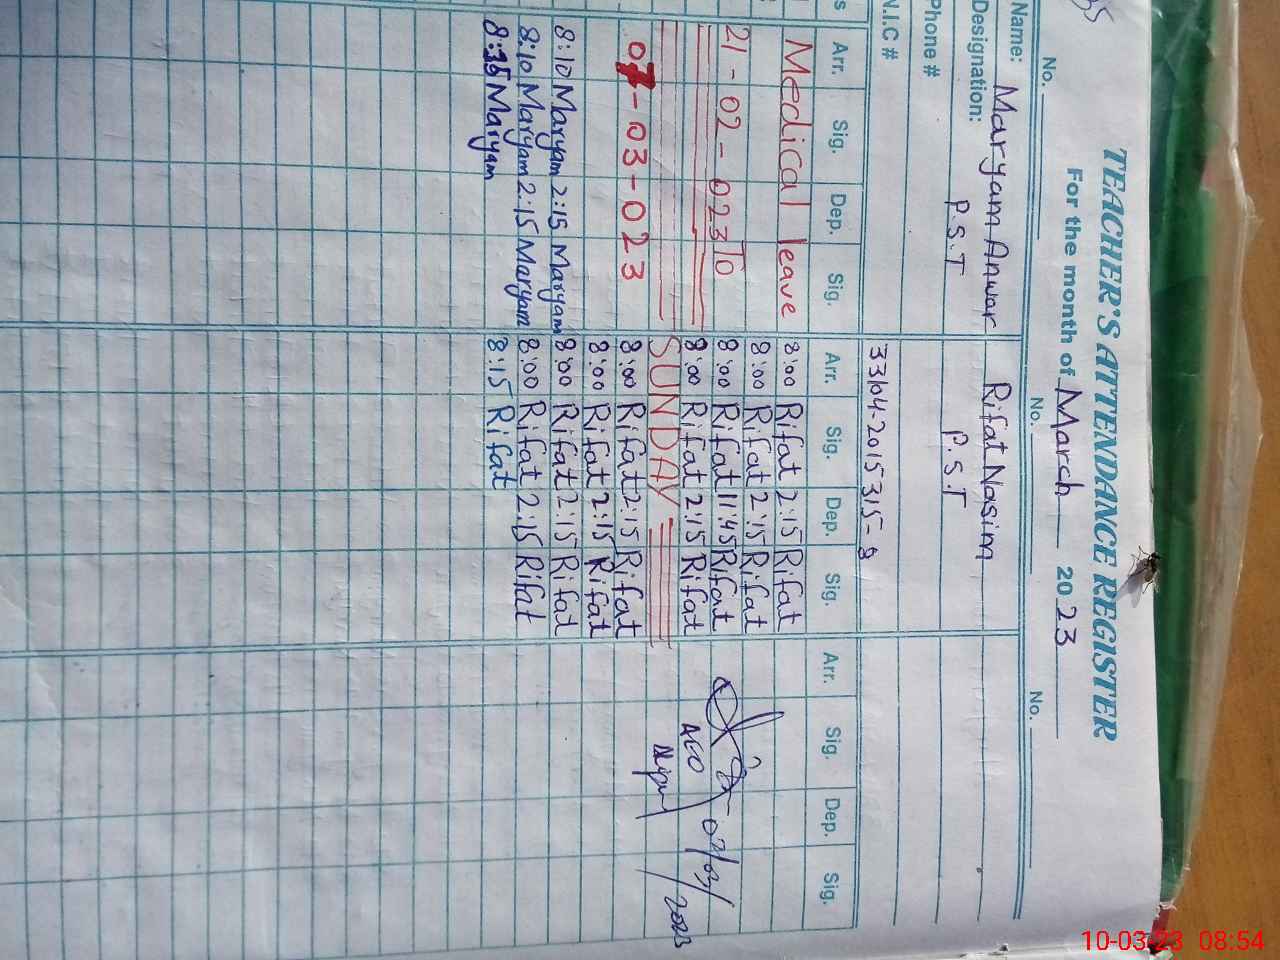 TEACHER'S ATTENDANCE REGISTER
For the month of March 2023
No. No. No.
Name: Maryam Anwar Rifat Nasim
Designation: P.S.T P.S.T
Phone #
N.I.C # 33104-2015315-8
s Arr. Sig. Dep. Sig. Arr. Sig. Dep. Sig. Arr. Sig. Dep. Sig.
Medical leave 8:00 Rifat 2:15 Rifat
8:00 Rifat 2:15 Rifat
21-02-023 To 8:00 Rifat 11:45 Rifat
8:00 Rifat 2:15 Rifat AEO
SUNDAY
07-03-023 8:00 Rifat 2:15 Rifat
8:00 Rifat 2:15 Rifat
8:10 Maryam 2:15 Maryam 8:00 Rifat 2:15 Rifat
8:10 Maryam 2:15 Maryam 8:00 Rifat 2:15 Rifat
8:35 Maryam 8:15 Rifat
2023
10-03-23 08:54